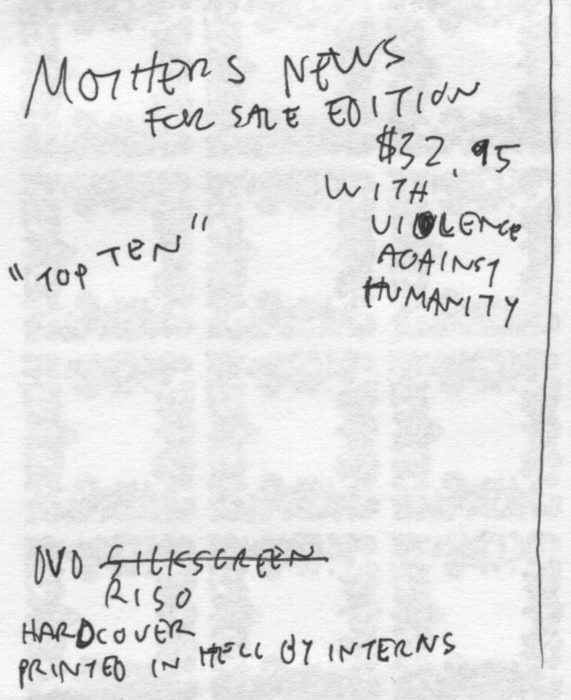 MOTHERS NEWS
FOR SALE EDITION
$32.95
WITH
VIOLENCE
AGAINST
HUMANITY
"TOP TEN"
DVD SILKSCREEN
RISO
HARDCOVER
PRINTED IN HELL BY INTERNS